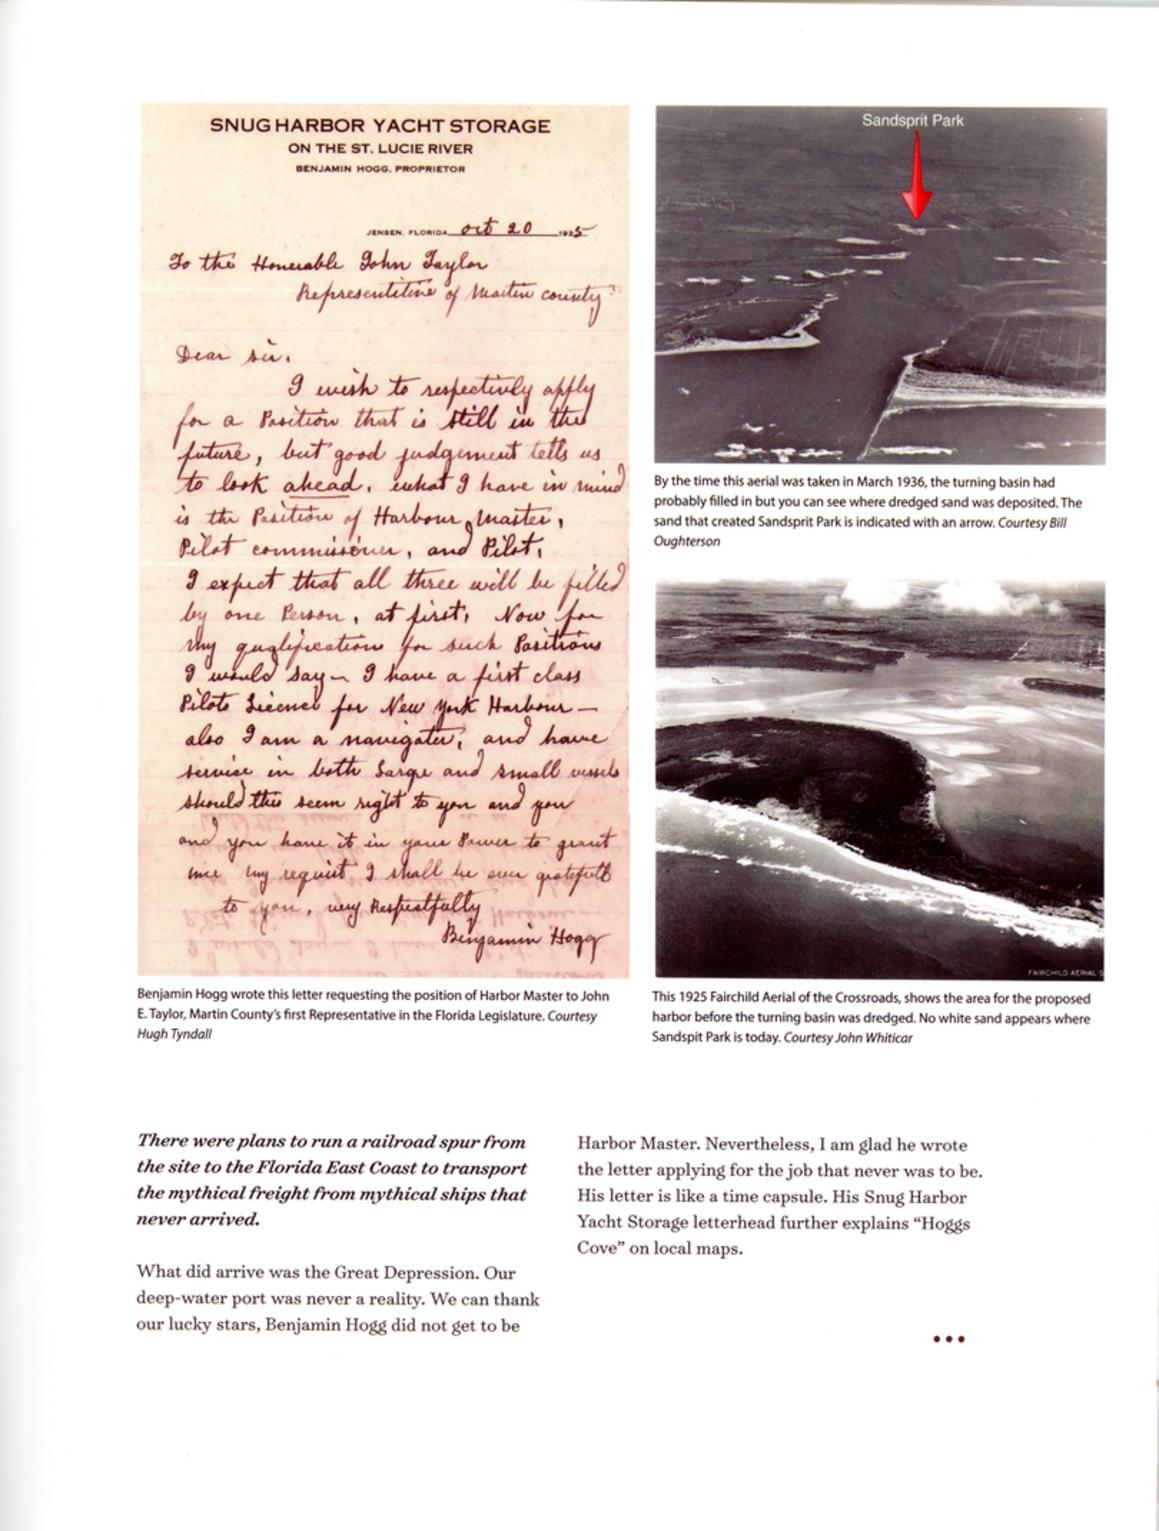 SNUG HARBOR YACHT STORAGE
ON THE ST. LUCIE RIVER
BENJAMIN HOGG, PROPRIETOR
JENSEN, FLORIDA Oct 20 1925
To the Honerable John Taylor
Representitive of Martin county
Dear sir.
I wish to respectivly apply
for a Position that is still in the
future, but good judgement tells us
to look ahead. what I have in mind
is the Position of Harbour Master,
Pilot commissioner, and Pilot,
I expect that all three will be filled
by one Person, at first, Now for
my qualification for such Positions
I would say - I have a first class
Pilots Licence for New York Harbour —
also I am a navigater, and have
service in both Large and small vessels
should this seem right to you and you
and you have it in your Power to grant
me my request I shall be ever gratefull
to you, very Respectfully
Benjamin Hogg
Benjamin Hogg wrote this letter requesting the position of Harbor Master to John
E. Taylor, Martin County's first Representative in the Florida Legislature. Courtesy
Hugh Tyndall
Sandsprit Park
By the time this aerial was taken in March 1936, the turning basin had
probably filled in but you can see where dredged sand was deposited. The
sand that created Sandsprit Park is indicated with an arrow. Courtesy Bill
Oughterson
FAIRCHILD AERIAL S
This 1925 Fairchild Aerial of the Crossroads, shows the area for the proposed
harbor before the turning basin was dredged. No white sand appears where
Sandspit Park is today. Courtesy John Whiticar
There were plans to run a railroad spur from
the site to the Florida East Coast to transport
the mythical freight from mythical ships that
never arrived.
What did arrive was the Great Depression. Our
deep-water port was never a reality. We can thank
our lucky stars, Benjamin Hogg did not get to be
Harbor Master. Nevertheless, I am glad he wrote
the letter applying for the job that never was to be.
His letter is like a time capsule. His Snug Harbor
Yacht Storage letterhead further explains “Hoggs
Cove” on local maps.